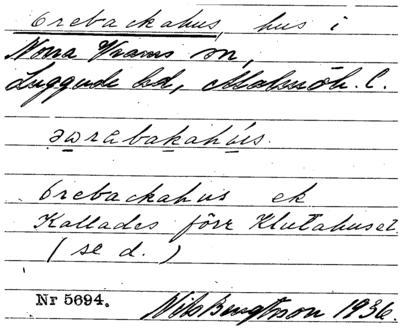 Orebackahus, hus i
Norra Vrams sn,
Luggude hd, Malmöh. l.
Orebackahus ek
Kallades förr Klutahuset
(se d.)
Nr 5694. Nils Bengtsson 1936.